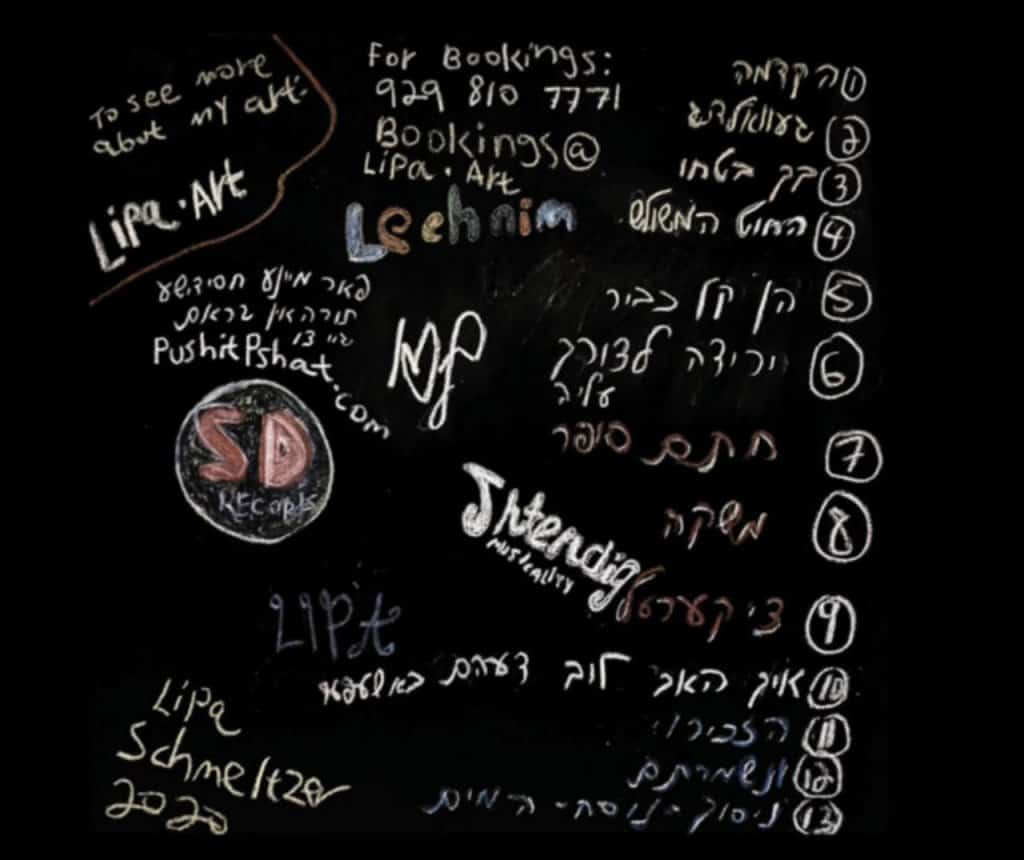 To see more
about my art.
Lipa.Art
For Bookings:
929 810 7771
Bookings@
Lipa.Art
Leehnim
פאר מיינע חסידישע
תורה אין גראם
גיי צו
PushitPshat.com
SD
Records
Shtendig
Musicality
LIPA
Lipa
Schmeltzer
2020
1 הקדמה
2 געוואלדיג
3 בך בטחו
4 החוט המשולש
5 הן קל כביר
6 ירידה לצורך
עליה
7 חתם סופר
8 משקה
9 צי קערסל
10 איך האב ליב דעם באשעפער
11 הזכירו
12 ונשמרתם
13 ניסוך - ניסח - המים